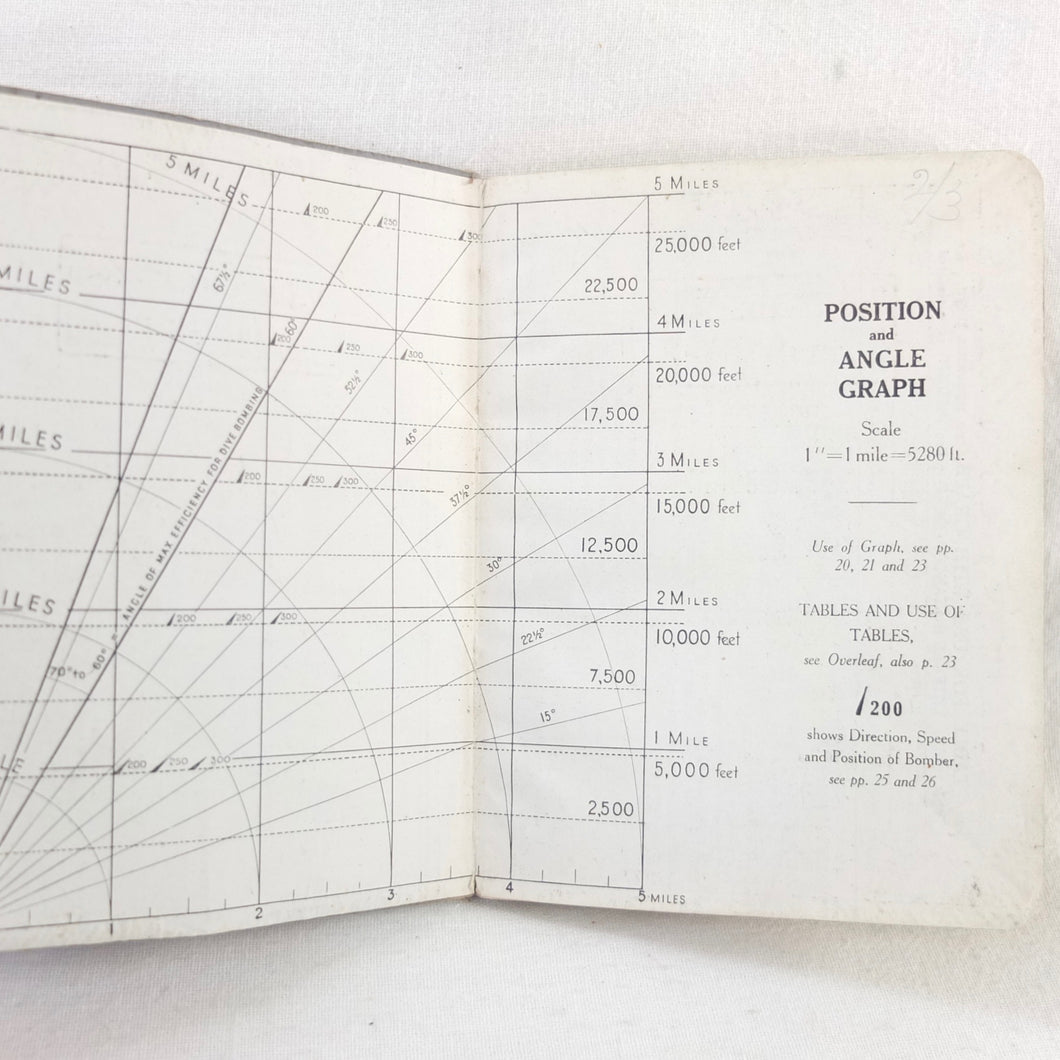 5 MILES
67½°
60°
200
250
300
MILES
200
250
300
52½°
45°
MILES
200
250
300
37½°
30°
ANGLE OF MAX EFFICIENCY FOR DIVE BOMBING
MILES
200
250
300
22½°
70° to 60° =
15°
200
250
300
1
2
3
4
5 MILES
5 MILES
25,000 feet
22,500
4 MILES
20,000 feet
17,500
3 MILES
15,000 feet
12,500
2 MILES
10,000 feet
7,500
1 MILE
5,000 feet
2,500
2/3
POSITION
and
ANGLE
GRAPH
Scale
1"=1 mile=5280 ft.
Use of Graph, see pp.
20, 21 and 23
TABLES AND USE OF
TABLES,
see Overleaf, also p. 23
200
shows Direction, Speed
and Position of Bomber,
see pp. 25 and 26